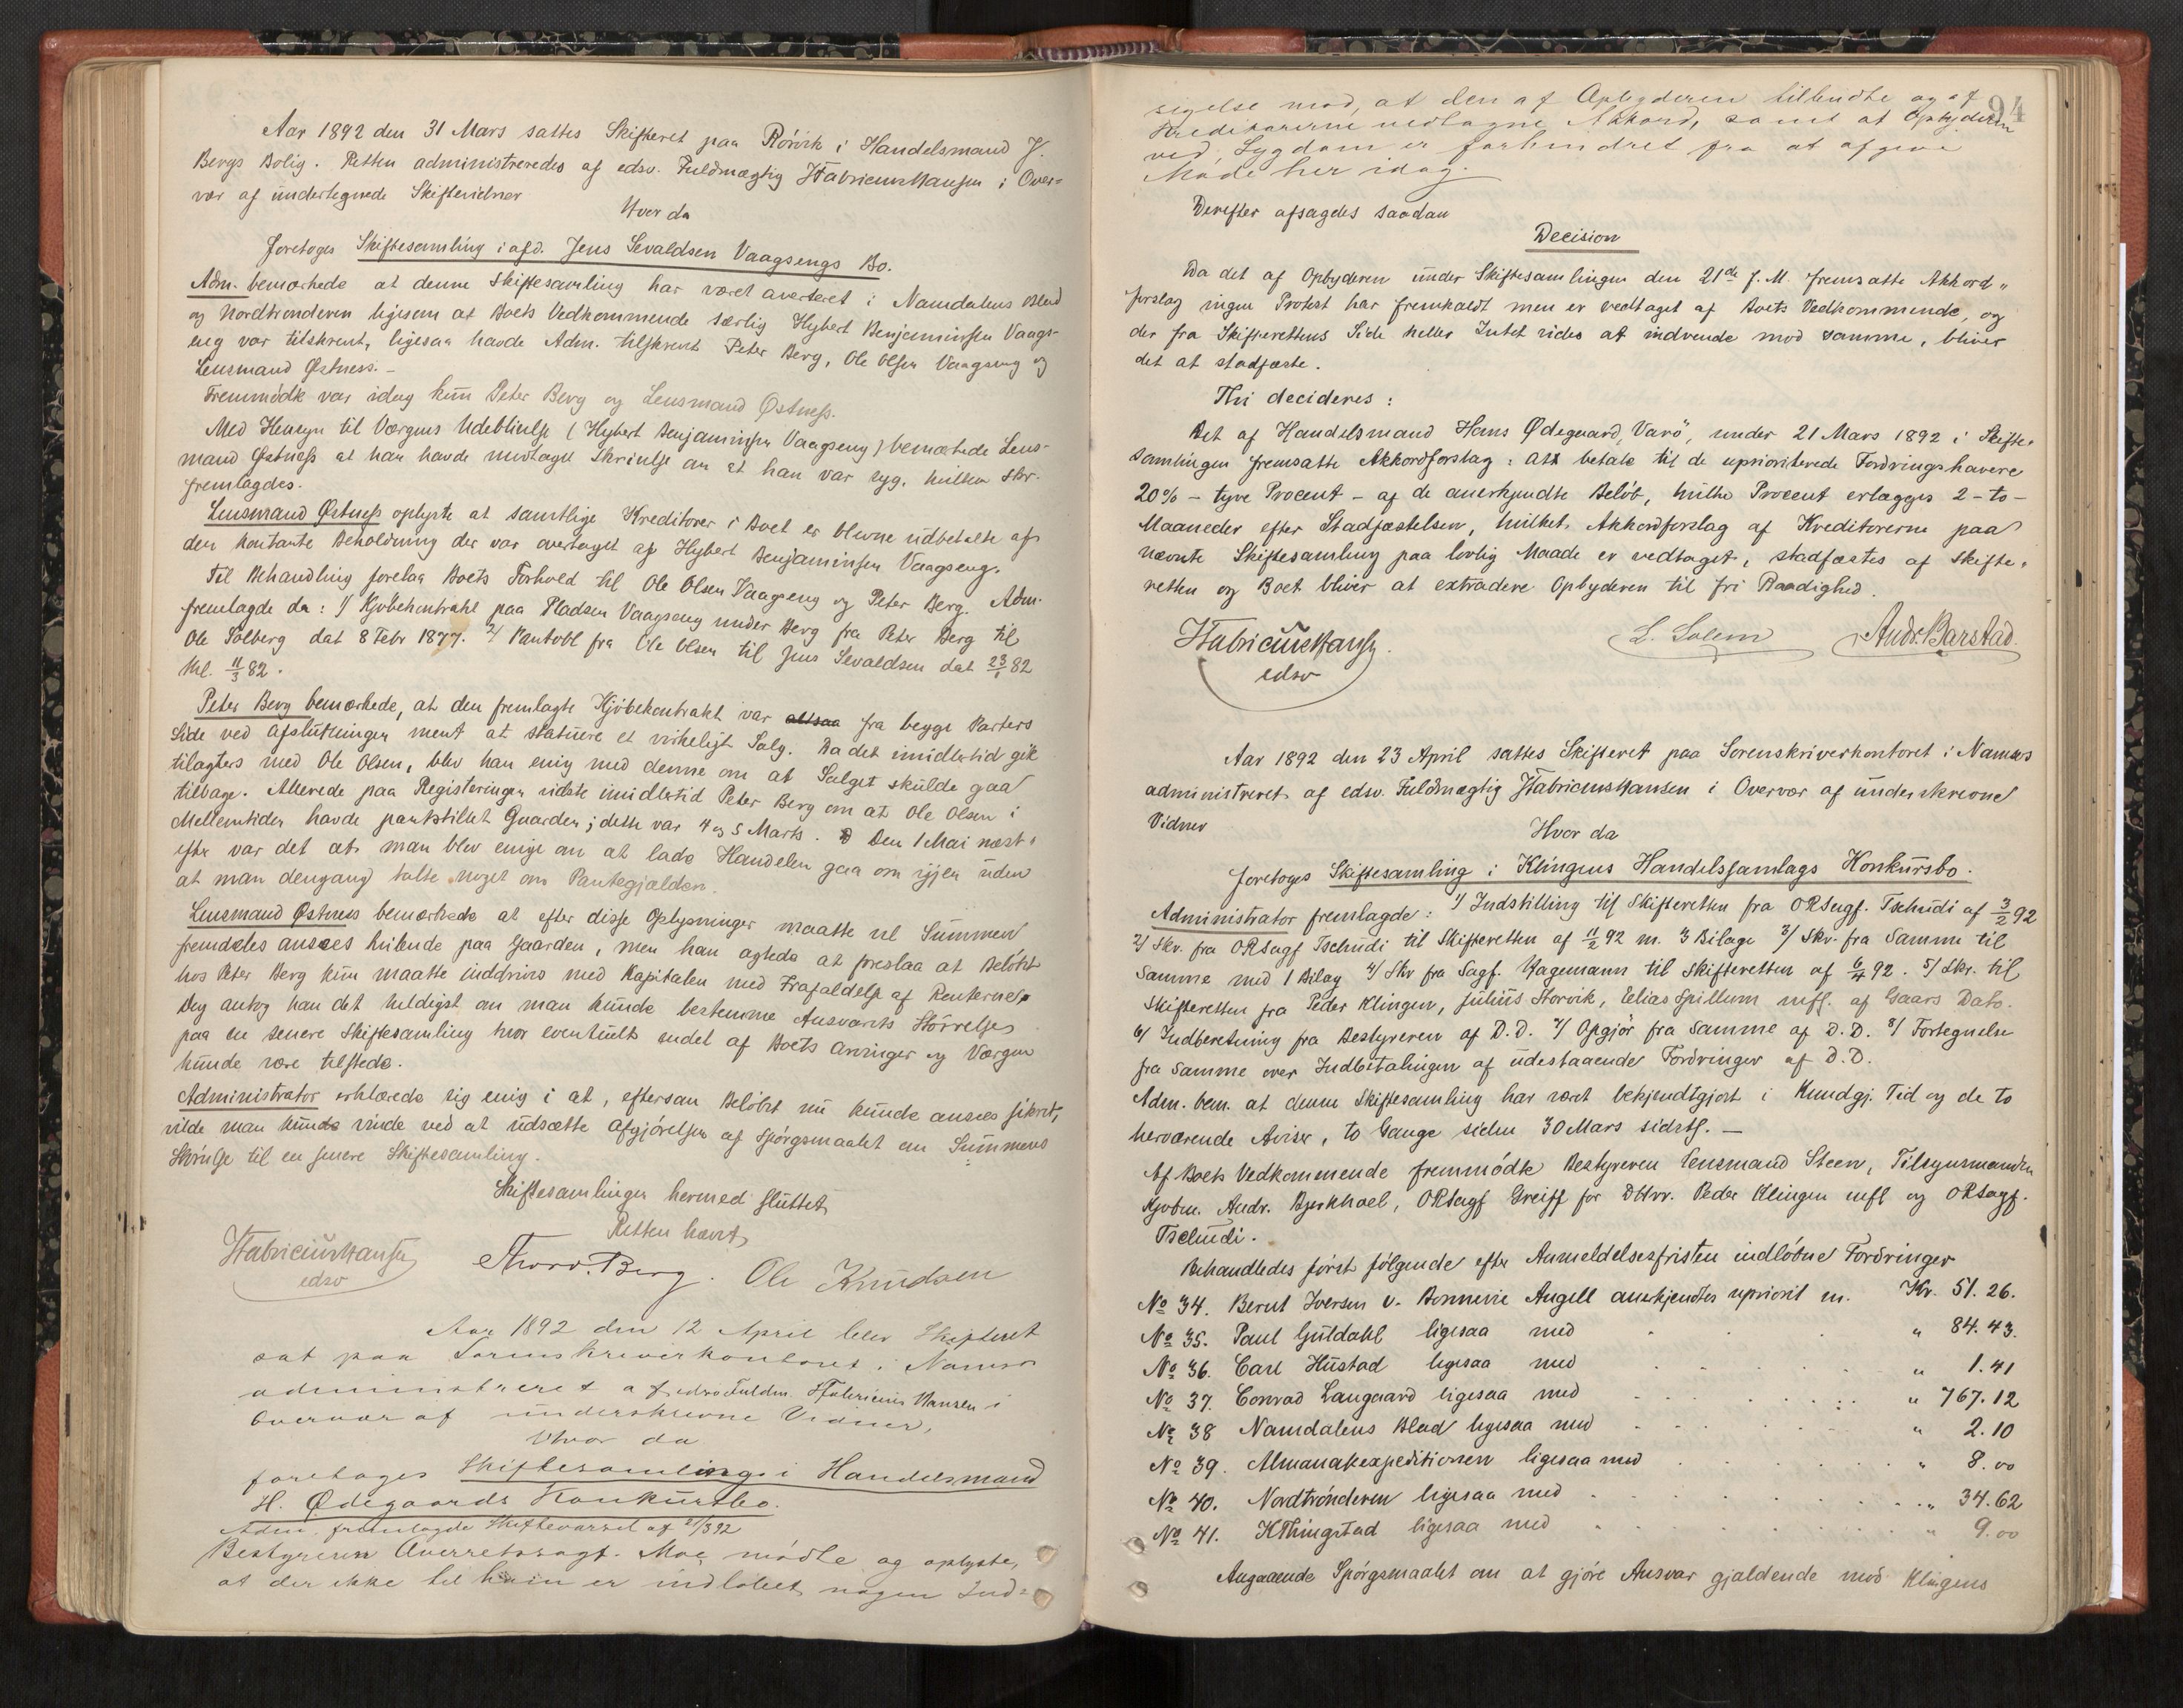 Aar 1892 den 31 Mars sattes Skifteret paa Rörvik i Handelsmand J.
Bergs Bolig. Retten administreredes af edsv. Fuldmægtig JFabriciusHansen i Over=
vær af undertegnede Skiftevidner
Hvor da
foretoges Skiftesamling i afd. Jens Sevaldsen Vaagsengs Bo.
Adm. bemærkede at denne Skiftesamling har været averteret i Namdalens Blad
og Nordtrønderen ligesom at Boets Vedkommende særlig Hybert Benjaminsen Vaags-
eng var tilskrevet, ligesaa havde Adm. tilskrevet Peter Berg, Ole Olsen Vaagseng og
Lensmand Østness.-
Fremmödt var idag kun Peter Berg og Lensmand Østness.
Med Hensyn til Værgens Udeblivelse (Hybert Benjaminsen Vaagseng) bemærkede Lens-
mand Østness at han havde modtaget Skrivelse om at han var syg, hvilken Skr.
fremlagdes.
Lensmand Østness oplyste at samtlige Kreditorer i Boet er blevne udbetalte af
den kontante Beholdning der var overtaget af Hybert Benjaminsen Vaagseng.
Til Behandling forelaa Boets Forhold til Ole Olsen Vaagseng og Peter Berg. Adm.
fremlagde da: 1/ Kjøbekontrakt paa Pladsen Vaagseng under Berg fra Peter Berg til
Ole Solberg dat 8 Febr 1877. 2/ Pantobl fra Ole Olsen til Jens Sevaldsen dat 23/1 82
thl. 11/3 82.
Peter Berg bemærkede, at den fremlagte Kjöbekontrakt var altsaa fra begge Parters
Side ved Afslutningen ment at statuere et virkeligt Salg. Da det imidlertid gik
tilagters med Ole Olsen, blev han enig med denne om at Salget skulde gaa
tilbage. Allerede paa Registeringen vidste imidlertid Peter Berg om at Ole Olsen i
Mellemtiden havde pantstillet Gaarden; dette var 4 og 5 Marts. Den 1 Mai næst
efter var det at man blev enige om at lade Handelen gaa om igjen uden
at man dengang talte noget om Pantegjælden.
Lensmand Østness bemærkede at efter disse Oplysninger maatte vel Summen
fremdeles ansees hvilende paa Gaarden, men han agtede at foreslaa at Beløbet
hos Peter Berg kun maatte inddrives med Kapitalen med Frafaldelse af Renterne.
Dog antog han det heldigst om man kunde bestemme Ansvarets Störrelse
paa en senere Skiftesamling hvor eventuelt endel af Boets Arvinger og Værgen
kunde være tilstede.
Administrator erklærede sig enig i at, eftersom Belöbet nu kunde ansees sikret,
vilde man kunde vinde ved at udsætte Afgjörelsen af Spörgsmaalet om Summens
til en senere Skiftesamling.
Skiftesamlingen hermed sluttet
Retten hævet
JFabriciusHansen
edsv
Thorv. Berg. Ole Knudsen
Aar 1892 den 12 April blev Skifteret
sat paa Sorenskriverkontoret i Namsos
administreret af edsv Fuldm. JFabricius Hansen i
Overvær af underskrevne Vidner,
Hvor da
foretoges Skiftesamling i Handelsmand
H. Ødegaards Konkursbo.
Adm. fremlagde Skiftevarsel af 21/3 92
Bestyreren Overretssagf. Moe mödte og oplyste,
at der ikke til ham er indlöbet nogen Ind=
94
sigelse mod, at den af Opbyderen tilbudte og af
Kreditorerne vedtagne Akkord, samt at Opbyderen
ved Sygdom er forhindret fra at afgive
Möde her idag.
Derefter afsagdes saadan
Decision
Da det af Opbyderen under Skiftesamlingen den 21de f. M. fremsatte Akkord„
forslag ingen Protest har fremkaldt men er vedtaget af Boets Vedkommende, og
der fra Skifterettens Side heller Intet vides at indvende mod samme, bliver
det at stadfæste.
Thi decideres:
Det af Handelsmand Hans Ødegaard, Varö, under 21 Mars 1892 i Skifte-
samlingen fremsatte Akkordforslag: at betale til de uprioriterede Fordringshavere
20% - tyve Procent - af de anerkjendte Beløb, hvilke Procent erlægges 2 - to -
Maaneder efter Stadfæstelsen, hvilket Akkordforslag af Kreditorerne paa
nævnte Skiftesamling paa lovlig Maade er vedtaget, stadfæstes af Skifte-
retten og Boet bliver at extradere Opbyderen til fri Raadighed.
JFabriciusHansen.
edsv
L. Salem Andr. Barstad.
Aar 1892 den 23 April sattes Skifteret paa Sorenskriverkontoret i Namsos
administreret af edsv. Fuldmægtig JFabriciusHansen i Overvær af underskrevne
Vidner
Hvor da
foretoges Skiftesamling i Klingens Handelssamlags Konkursbo.
Administrator fremlagde: 1/ Indstilling til Skifteretten fra ORSagf. Tschudi af 3/2 92
2/ Skr. fra ORSagf Tschudi til Skifteretten af 11/2 92 m. 3 Bilage 3/ Skr. fra Samme til
Samme med 1 Bilag 4/ Skr fra Sagf. Hagemann til Skifteretten af 6/4 92. 5/ Skr. til
Skifteretten fra Peder Klingen, Julius Storvik, Elias Spillum mfl. af Gaars Dato.
6/ Indberetning fra Bestyreren af D.D. 7/ Opgjör fra Samme af D.D. 8/ Fortegnelse
fra Samme over Indbetalingen af udestaaende Fordringer af D.D.
Adm. bem. at denne Skiftesamling har været bekjendtgjort i Kundgj. Tid og de to
herværende Aviser, to Gange siden 30 Mars sidstl. -
Af Boets Vedkommende fremmödte Bestyreren Lensmand Steen, Tilsynsmanden
Kjøbm. Andr. Bjerkhoel, ORSagf Greiff for DHrr. Peder Klingen mfl og ORSagf.
Tschudi.
Behandledes först fölgende efter Anmeldelsesfristen indlöbne Fordringer
No 34. Bernt Iversen v. Bonnevie Angell anerkjendtes upriorit m. Kr. 51.26.
No 35. Paul Guldahl ligesaa med „ 84.43.
No 36. Carl Hustad ligesaa med „ 1.41
No 37. Conrad Langaard ligesaa med „ 767.12
No 38 Namdalens Blad ligesaa med „ 2.10
No 39. Almanakexpeditionen ligesaa med „ 8.00
No 40. Nordtrönderen ligesaa med „ 34.62
No 41. KThingstad ligesaa med „ 9.00
Angaaende Spörgsmaalet om at gjöre Ansvar gjældende mod Klingens